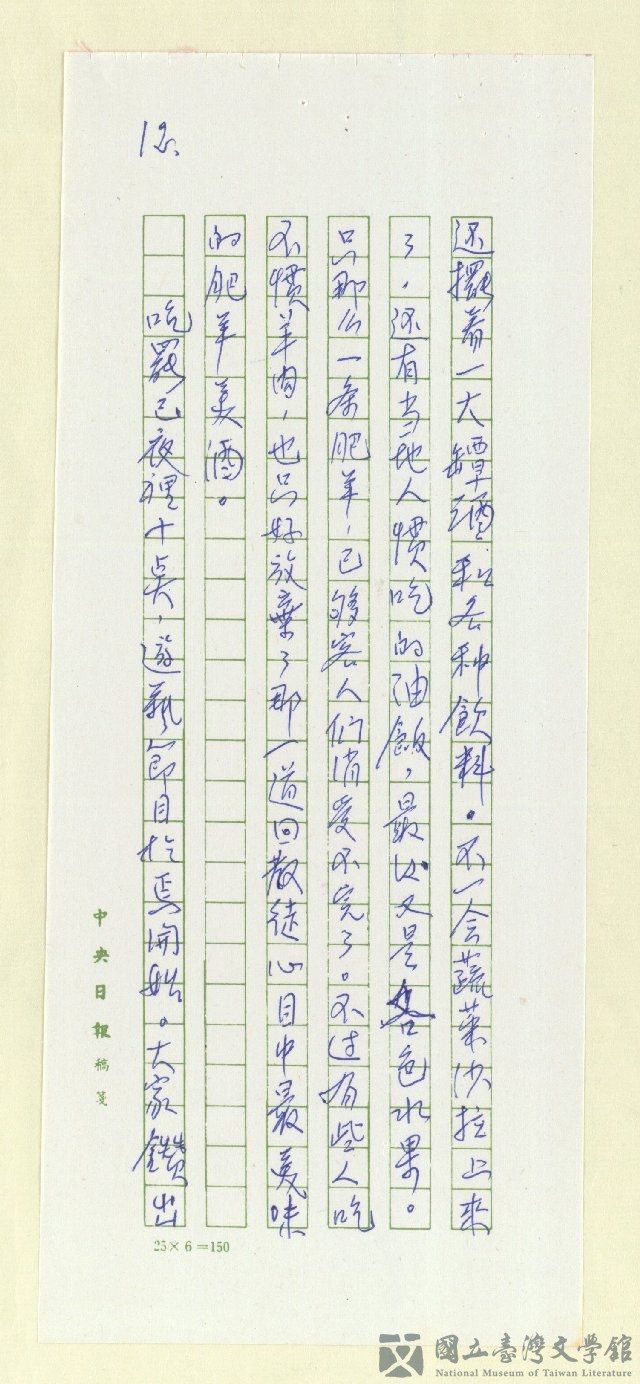 12.
还擺着一大罈酒和各种飲料。不一会蔬菜沙拉上来
了，还有当地人慣吃的油飯，最后又是各色水果。
只那么一条肥羊，已够客人们消受不完了。不过有些人吃
不慣羊肉，也只好放棄了那一道回教徒心目中最美味
的肥羊美酒。
吃罷已夜裡十点，遊艺節目於焉開始。大家鑽出
中央日報稿箋
25×6=150
國立臺灣文學館
National Museum of Taiwan Literature